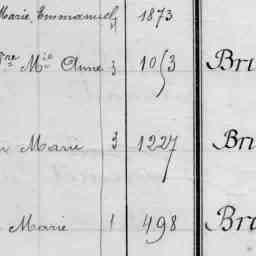 Marie, Emmanuel 4 1873
Mie Anne 3 1053 Bri
Marie 3 1227 Bri
Marie 1 498 Bri